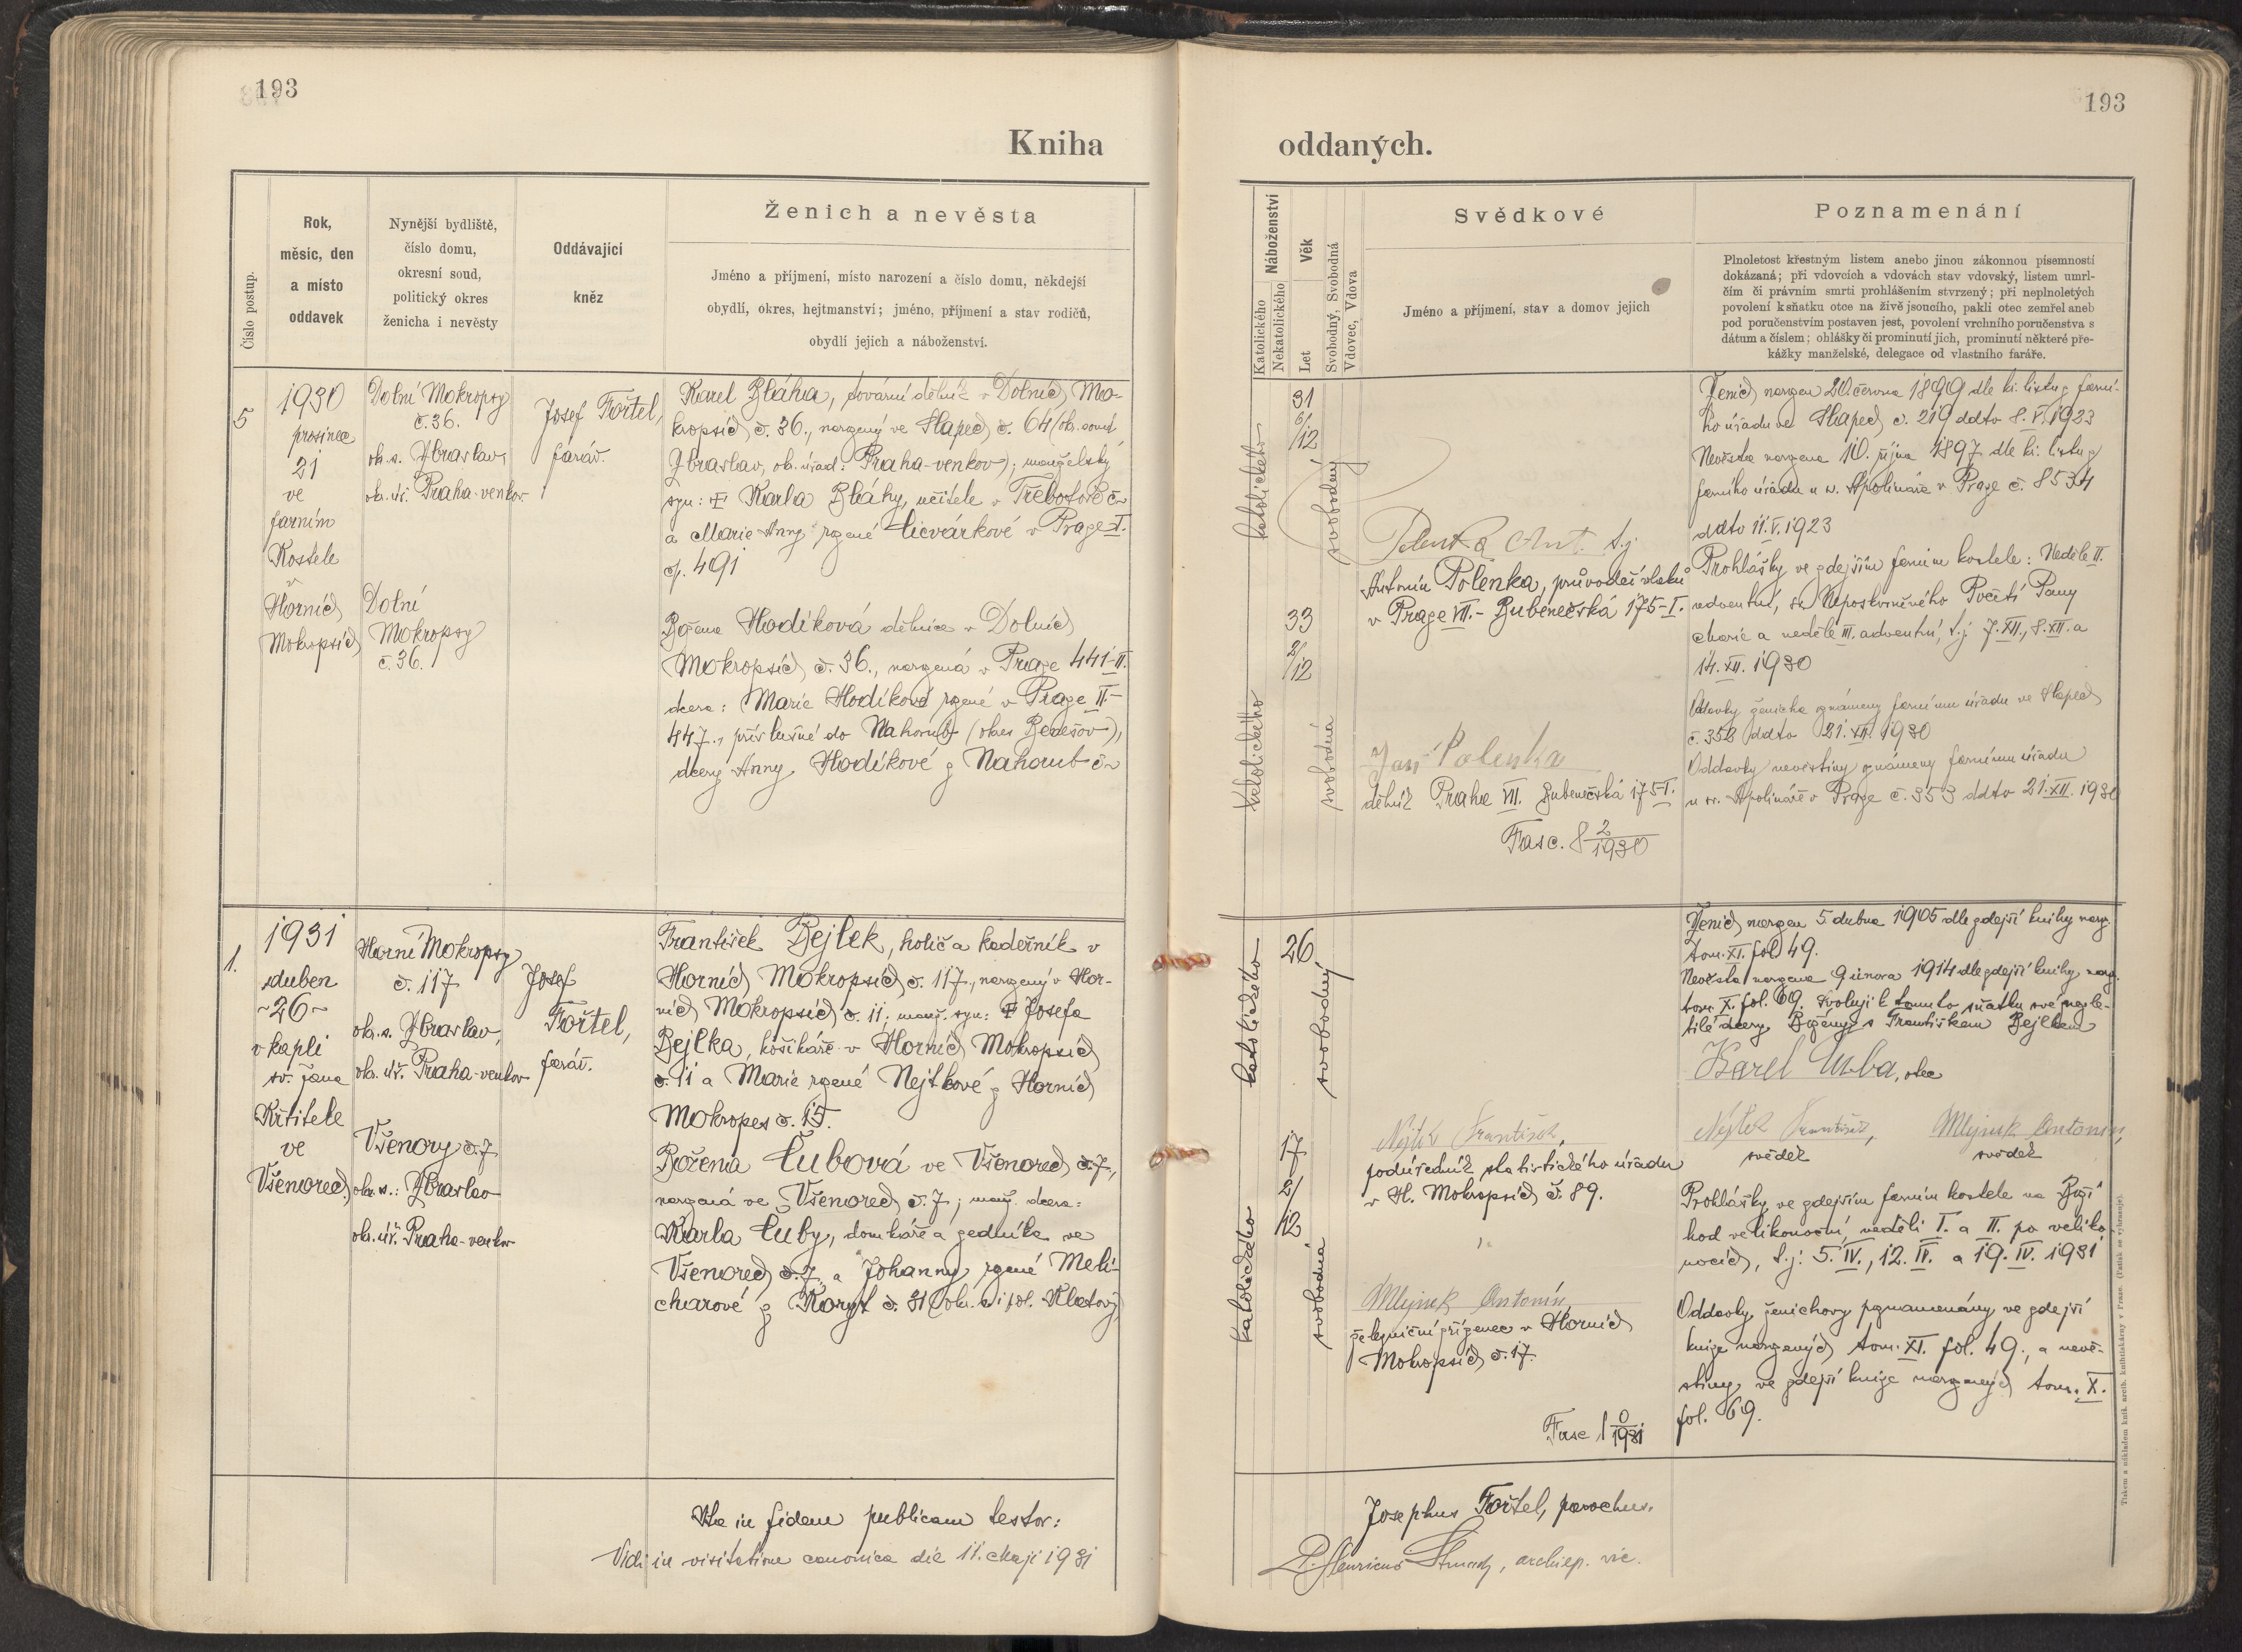 193
193
Kniha
oddaných.
Číslo postup.
Rok,
měsíc, den
a místo
oddavek
Nynější bydliště,
číslo domu,
okresní soud,
politický okres
ženicha i nevěsty
Oddávající
kněz
Ženich a nevěsta
Jméno a příjmení, místo narození a číslo domu, někdejší
obydlí, okres, hejtmanství; jméno, příjmení a stav rodičů,
obydlí jejich a náboženství.
5
1930
prosinec
21
ve
farním
Kostele
v
Horních
Mokropsích
Dolní Mokropsy
č. 36.
ok. s. Zbraslav,
ok. úř. Praha-venkov
Dolní
Mokropsy
č. 36.
Josef Fořtel,
farář.
Karel Bláha, tovární dělník v Dolních Mo-
kropsích č. 36., narozený ve Slapech č. 64 (ok. soud
Zbraslav, ok. úřad: Praha-venkov); manželský
syn: Karla Bláhy, učitele v Třebotově č.
a Marie Anny rozené Licvárkové v Praze I.
čp. 491
Božena Hodíková dělnice v Dolních
Mokropsích č. 36., narozená v Praze 441-II.
dcera: Marie Hodíkové rozené v Praze II-
447., příslušné do Nahorub (okres Benešov),
dcery Anny Hodíkové z Nahorub č.
1.
1931
duben
~26~
v kapli
sv. Jana
Křtitele
ve
Všenorech
Horní Mokropsy
č. 117
ok. s. Zbraslav,
ok. úř. Praha-venkov
Všenory č. 7
ok. s.: Zbraslav
ok. úř. Praha-venkov
Josef
Fořtel,
farář.
František Bejlek, holič a kadeřník v
Horních Mokropsích č. 117., narozený v Hor-
ních Mokropsích č. 11. manž. syn: Josefa
Bejlka, košíkáře v Horních Mokropsích
č. 11 a Marie rozené Nejtkové z Horních
Mokropes č. 15.
Božena Lubová ve Všenorech č. 7.,
narozená ve Všenorech č. 7; manž. dcera:
Karla Luby, domkáře a zedníka ve
Všenorech č. 7. a Johanny rozené Meli-
charové z Koryt č. 31 (ok. s. i pol. Klatovy)
Ita in fidem publicam testor:
Vidi in visitatione canonica die 11. Maji 1931
Náboženství
Katolického
Nekatolického
Věk
Let
Svobodný, Svobodná
Vdovec, Vdova
Svědkové
Jméno a příjmení, stav a domov jejich
Poznamenání
Plnoletost křestným listem anebo jinou zákonnou písemností
dokázaná; při vdovcích a vdovách stav vdovský, listem umrl-
čím či právním smrti prohlášením stvrzený; při neplnoletých
povolení k sňatku otce na živě jsoucího, pakli otec zemřel aneb
pod poručenstvím postaven jest, povolení vrchního poručenstva s
dátum a číslem; ohlášky či prominutí jich, prominutí některé pře-
kážky manželské, delegace od vlastního faráře.
katolického
31
6/12
svobodný
katolického
33
2/12
svobodná
Polenka Ant. t. j.
Antonín Polenka, průvodčí vlaků
v Praze VII.- Bubenečská 175-I.
Jan Polenka
dělník Praha VII. Bubenečská 175-I.
Fasc. 8 2/1930
Ženich narozen 20. června 1899 dle kř. listu farní-
ho úřadu ve Slapech č. 219 ddto 8. V. 1923
Nevěsta narozena 10. října 1897 dle kř. listu
farního úřadu u sv. Apolináře v Praze č. 8534
ddto 11. V. 1923
Prohlášky ve zdejším farním kostele: Neděle II.
adventní, sv. Neposkvrněného Početí Panny
Marie a neděle III. adventní, t. j. 7. XII., 8. XII. a
14. XII. 1930
Oddavky ženicha oznámeny farnímu úřadu ve Slapech
č. 352 ddto 21. XII. 1930
Oddavky nevěstiny oznámeny farnímu úřadu
u sv. Apolináře v Praze č. 353 ddto 21. XII. 1930
katolického
26
svobodný
katolického
17
2/12
svobodná
Nejtek František,
podúředník statistického úřadu
v H. Mokropsích č. 89.
Mlejnek Antonín
železniční zřízenec v Horních
Mokropsích č. 17.
Fasc 1 0/1931
Ženich narozen 5. dubna 1905 dle zdejší knihy naroz.
tom. XI. fol 49.
Nevěsta narozena 9 února 1914 dle zdejší knihy naroz.
tom. X. fol. 69. Svoluji k tomuto sňatku své nezle-
tilé dcery Boženy s Františkem Bejlkem
Karel Luba, otec
Nejtek František, Mlejnek Antonín,
svědek svědek
Prohlášky ve zdejším farním kostele na Boží
hod velikonoční, neděli I. a II. po veliko-
nocích, t. j.: 5. IV., 12. IV. a 19. IV. 1931
Oddavky ženichovy poznamenány ve zdejší
knize narozených tom. XI. fol. 49., a nevě-
stiny ve zdejší knize narozených tom. X.
fol. 69.
Josephus Fořtel, parochus.
P. Henricus, archiep. vic.
Tiskem a nákladem kníž. arcib. knihtiskárny v Praze. (Patisk se vyhrazuje).